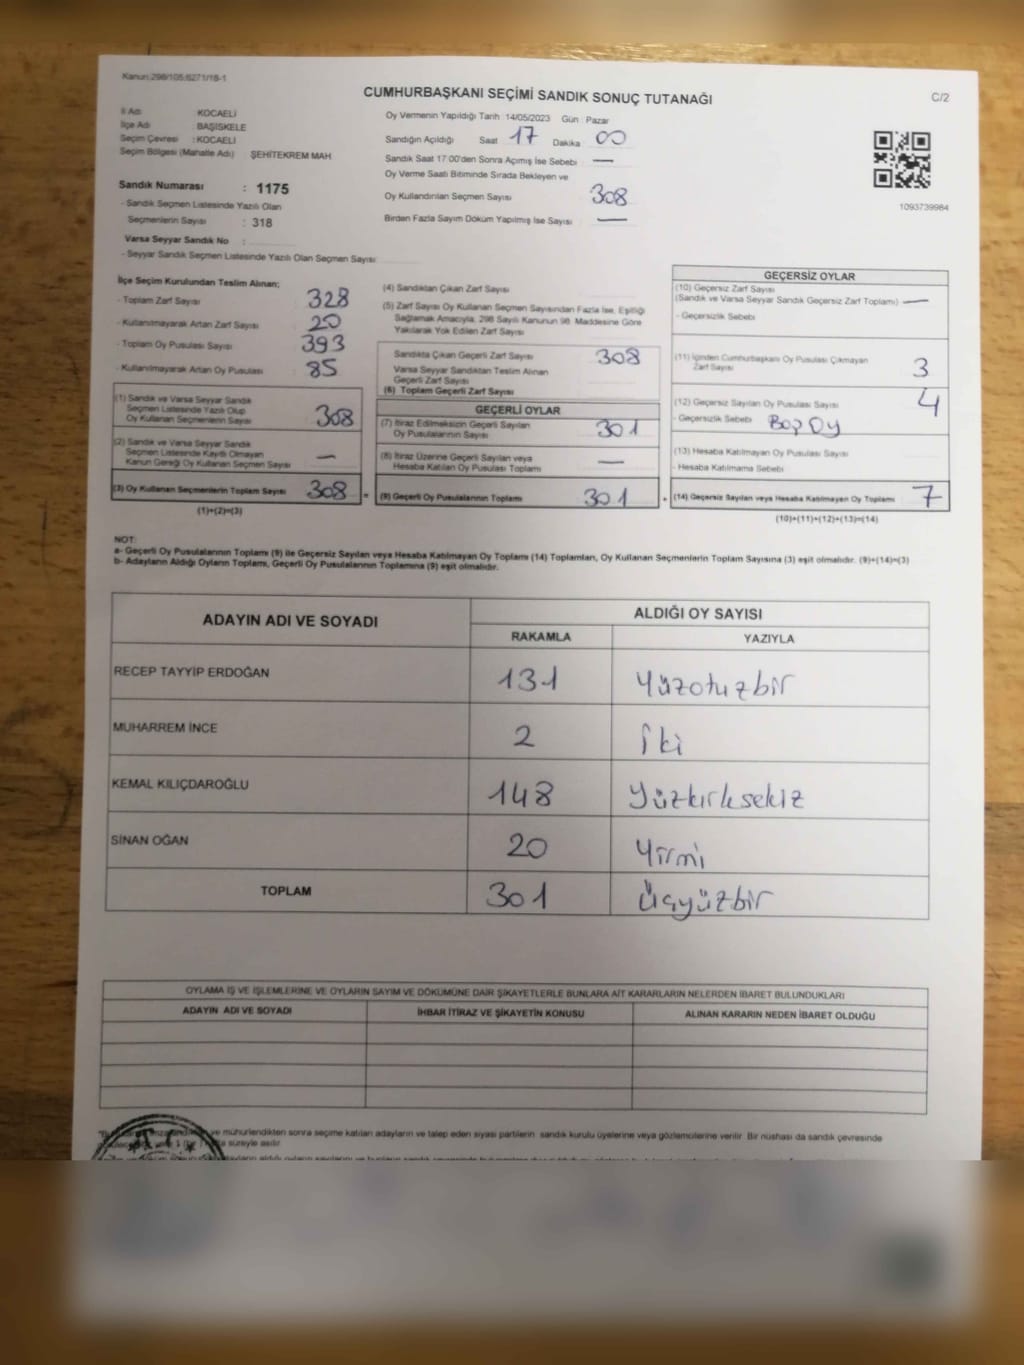 Kanun:298/105;6271/18-1
CUMHURBAŞKANI SEÇİMİ SANDIK SONUÇ TUTANAĞI
C/2
İl Adı KOCAELİ
İlçe Adı BAŞİSKELE
Seçim Çevresi : KOCAELİ
Seçim Bölgesi (Mahalle Adı) ŞEHİTEKREM MAH.
Sandık Numarası : 1175
- Sandık Seçmen Listesinde Yazılı Olan
Seçmenlerin Sayısı : 318
Varsa Seyyar Sandık No :
- Seyyar Sandık Seçmen Listesinde Yazılı Olan Seçmen Sayısı:
Oy Vermenin Yapıldığı Tarih :14/05/2023 Gün : Pazar
Sandığın Açıldığı Saat 17 Dakika 00
Sandık Saat 17:00'den Sonra Açımış İse Sebebi —
Oy Verme Saati Bitiminde Sırada Bekleyen ve
Oy Kullandırılan Seçmen Sayısı 308
Birden Fazla Sayım Döküm Yapılmış İse Sayısı —
1093739984
İlçe Seçim Kurulundan Teslim Alınan;
- Toplam Zarf Sayısı 328
- Kullanılmayarak Artan Zarf Sayısı 20
- Toplam Oy Pusulası Sayısı 393
- Kullanılmayarak Artan Oy Pusulası 85
(1) Sandık ve Varsa Seyyar Sandık
Seçmen Listesinde Yazılı Olup
Oy Kullanan Seçmenlerin Sayısı 308
(2) Sandık ve Varsa Seyyar Sandık
Seçmen Listesinde Kayıtlı Olmayan
Kanun Gereği Oy Kullanan Seçmen Sayısı —
(3) Oy Kullanan Seçmenlerin Toplam Sayısı 308 =
(1)+(2)=(3)
(4) Sandıktan Çıkan Zarf Sayısı
(5) Zarf Sayısı Oy Kullanan Seçmen Sayısından Fazla İse, Eşitliği
Sağlamak Amacıyla, 298 Sayılı Kanunun 98. Maddesine Göre
Yakılarak Yok Edilen Zarf Sayısı
Sandıkta Çıkan Geçerli Zarf Sayısı 308
Varsa Seyyar Sandıktan Teslim Alınan
Geçerli Zarf Sayısı
(6) Toplam Geçerli Zarf Sayısı
GEÇERLİ OYLAR
(7) İtiraz Edilmeksizin Geçerli Sayılan
Oy Pusulalarının Sayısı 301
(8) İtiraz Üzerine Geçerli Sayılan veya
Hesaba Katılan Oy Pusulası Toplamı —
(9) Geçerli Oy Pusulalarının Toplamı 301 +
GEÇERSİZ OYLAR
(10) Geçersiz Zarf Sayısı
(Sandık ve Varsa Seyyar Sandık Geçersiz Zarf Toplamı) —
- Geçersizlik Sebebi
(11) İçinden Cumhurbaşkanı Oy Pusulası Çıkmayan
Zarf Sayısı 3
(12) Geçersiz Sayılan Oy Pusulası Sayısı 4
- Geçersizlik Sebebi Boş Oy
(13) Hesaba Katılmayan Oy Pusulası Sayısı
- Hesaba Katılmama Sebebi
(14) Geçersiz Sayılan veya Hesaba Katılmayan Oy Toplamı 7
(10)+(11)+(12)+(13)=(14)
NOT:
a- Geçerli Oy Pusulalarının Toplamı (9) ile Geçersiz Sayılan veya Hesaba Katılmayan Oy Toplamı (14) Toplamları, Oy Kullanan Seçmenlerin Toplam Sayısına (3) eşit olmalıdır. (9)+(14)=(3)
b- Adayların Aldığı Oyların Toplamı, Geçerli Oy Pusulalarının Toplamına (9) eşit olmalıdır.
ADAYIN ADI VE SOYADI
ALDIĞI OY SAYISI
RAKAMLA YAZIYLA
RECEP TAYYİP ERDOĞAN 131 Yüzotuzbir
MUHARREM İNCE 2 İki
KEMAL KILIÇDAROĞLU 148 Yüzkırksekiz
SİNAN OĞAN 20 Yirmi
TOPLAM 301 Üçyüzbir
OYLAMA İŞ VE İŞLEMLERİNE VE OYLARIN SAYIM VE DÖKÜMÜNE DAİR ŞİKAYETLERLE BUNLARA AİT KARARLARIN NELERDEN İBARET BULUNDUKLARI
ADAYIN ADI VE SOYADI İHBAR İTİRAZ VE ŞİKAYETİN KONUSU ALINAN KARARIN NEDEN İBARET OLDUĞU
ve mühürlendikten sonra seçime katılan adayların ve talep eden siyasi partilerin sandık kurulu üyelerine veya gözlemcilerine verilir. Bir nüshası da sandık çevresinde
süreyle asılır